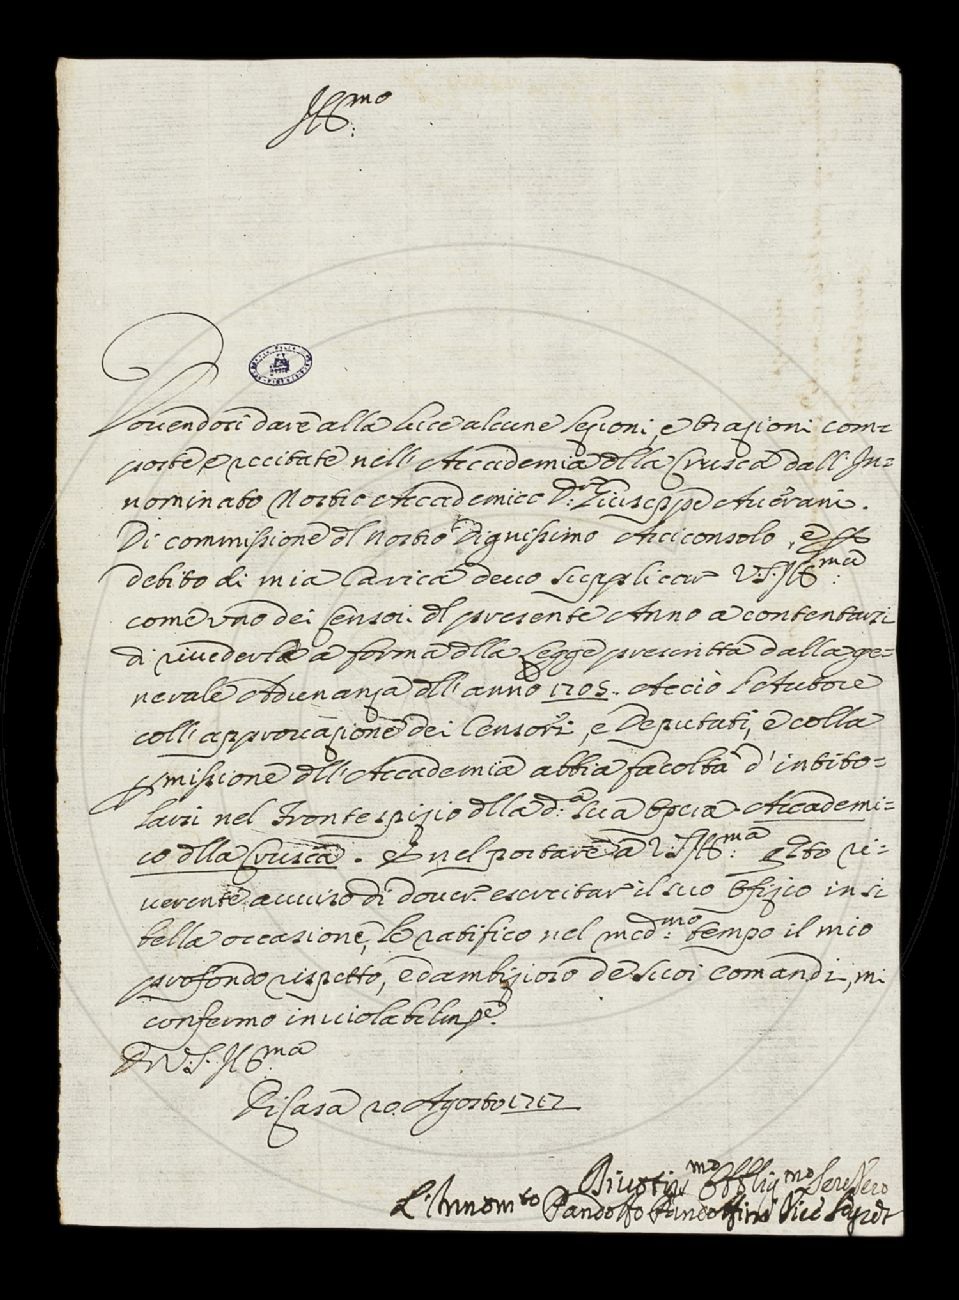 Ill:mo
Dovendosi dare alla luce alcune Lezioni, e Orazioni com=
poste, e recitate nell' Accademia dlla Crusca dall' In=
nominato Nostro Accademico D:r Giuseppe Averani.
Di commissione dl Nostro Dignissimo Arciconsolo, e
debito di mia Carica devo supplicar V:S:Ill:ma
come uno dei Censori dl presente Anno a contentarsi
di rivederle a forma dlla Legge prescritta dalla ge=
nerale Adunanza dll' anno 1705. Acciò l'Autore
coll' approvazione dei Censori, e Deputati, e colla
pmissione dll' Accademia abbia facoltà d' intito=
larsi nel Frontespizio dlla d:a sua Opera Accademi=
co dlla Crusca. E nel portare a V:S:Ill:ma qto ri=
verente avviso di dover esercitar il suo Ofizio in sì
bella occasione, le ratifico nel med:mo tempo il mio
profondo rispetto, ed ambizioso de suoi comandi, mi
confermo inviolabilmte
D V:S:Ill:ma
Di Casa 20. Agosto 1717
Obblig:mo Ser:
L'Innom:to Pandolfo Pandolfini Vice Segret: